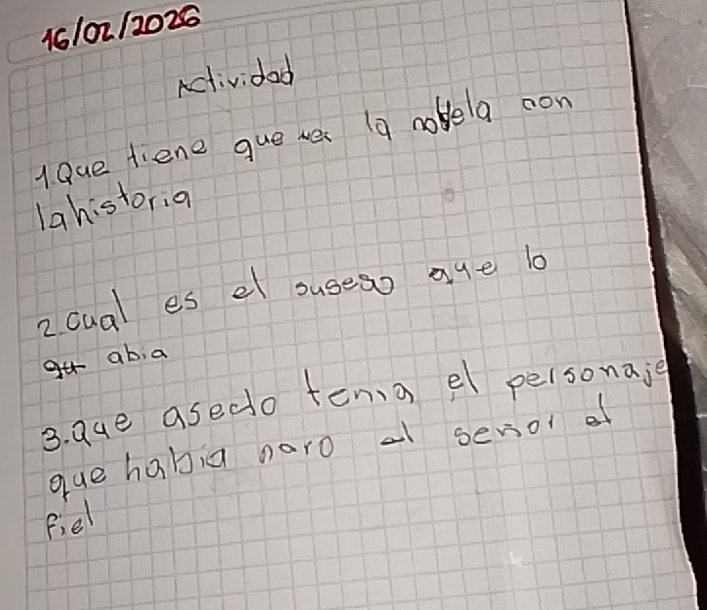 16/02/2026
Actividad
1. Que tiene que ver la novela con
la historia
2. cual es el suseso que lo
abia
3. Que asecto tenia el personaje
que habia naro al senor el
fiel